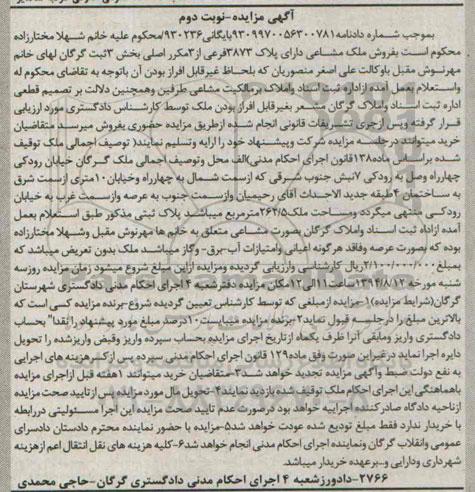 آگهی مزایده-نوبت دوم
بموجب شماره دادنامه ۹۳۰۹۹۷۰۰۵۶۳۰۰۷۸۱بایگانی۹۳۰۲۳۶/محکوم علیه خانم شهلا مختارزاده
محکوم است بفروش ملک مشاعی دارای پلاک ۳۸۷۳فرعی از۳مکرر اصلی بخش ۳ثبت گرگان لهای خانم
مهرنوش مقبل باوکالت علی اصغر منصوریان که بلحاظ غیرقابل افراز بودن آن باتوجه به تقاضای محکوم له
واستعلام بعمل آمده ازاداره ثبت اسناد واملاک برمالکیت مشاعی طرفین وهمچنین دلالت بر تصمیم قطعی
اداره ثبت اسناد واملاک گرگان مشعر بغیرقابل افراز بودن ملک توسط کارشناس دادگستری مورد ارزیابی
قرار گرفته وپس ازجری تشریفات قانونی انجام شده ازطریق مزایده حضوری بفروش میرسد متقاضیان
خرید میتوانند درجلسه مزایده شرکت وپیشنهاد خود را ارایه وتسلیم نمایند( توصیف اجمالی ملک توقیف
شده براساس ماده۱۳۸قانون اجرای احکام مدنی)الف محل وتوصیف اجمالی ملک گرگان خیابان رودکی
چهارراه وصل به رودکی ۷نبش جنوب شرقی که ازسمت شمال به چهارراه وخیابان ۱۰متری ازسمت شرق
به ساختمان ۴طبقه جدید الاحداث آقای رحیمیان وازسمت جنوب به عرصه وازسمت غرب به خیابان
رودکی منتهی میگردد ومساحت ملک۲۶۲/۵مترمربع میباشد پلاک ثبتی مذکور طبق استعلام بعمل
آمده ازاداه ثبت اسناد واملاک گرگان بصورت مشاعی متعلق به خانم ها مهرنوش مقبل وشهلا مختارزاده
بوده که بصورت عرصه وفاقد هرگونه اعیانی وامتیازات آب-برق- وگاز میباشد ملک بدون تعریض میباشد که
بمبلغ۲/۱۰۰/۰۰۰/۰۰۰ریال کارشناسی وارزیابی گردیده ومزایده ازاین مبلغ شروع میشود زمان مزایده روزسه
شنبه مورخه ۱۳۹۴/۸/۱۲ساعت۱۱الی۱۲مکان مزایده دفترشعبه ۴اجرای احکام مدنی دادگستری شهرستان
گرگان(شرایط مزایده)۱-مزایده ازمبلغی که توسط کارشناس تعیین گردیده شروع-برنده مزایده کسی است که
بالاترین مبلغ را درجلسه قبول نماید۲-برنده مزایده میبایست۱۰درصد مبلغ مورد پیشنهاد را نقدا" بحساب
دادگستری واریز ومابقی آنرا ظرف یکماه ازتاریخ اجرای مزایده بحساب سپرده واریز وقبض واریزشده را تحویل
دایره اجرا نماید درغیراین صورت وفق ماده۱۲۹ قانون اجرای احکام مدنی سپرده پس ازکسرهزینه های اجرایی
به نفع دولت ضبط واگهی مزایده تجدید خواهد شد۳-متقاضیان خرید میتوانند ۱هفته قبل ازاجرای مزایده
باهماهنگی این اجرای احکام ملک توقیف شده بازدید نمایند۴- تحویل مال مورد مزایده پس ازتایید صحت مزایده
ازناحیه دادگاه صادرکننده اجراییه خواهد بود درصورت عدم تایید صحت مزایده این اجرا مسئولیتی دررابطه
با خریدار ندارد فقط مبلغ تودیع شده عودت خواهد شد۵-مزایده با حضور نماینده محترم دادستان دادسرای
عمومی وانقلاب گرگان ونماینده اجرای احکام مدنی انجام خواهد شد۶-کلیه هزینه های نقل انتقال اعم ازهزینه
شهرداری ودارایی و..برعهده خریدار میباشد.
۲۷۶۶-دادورزشعبه ۴ اجرای احکام مدنی دادگستری گرگان-حاجی محمدی